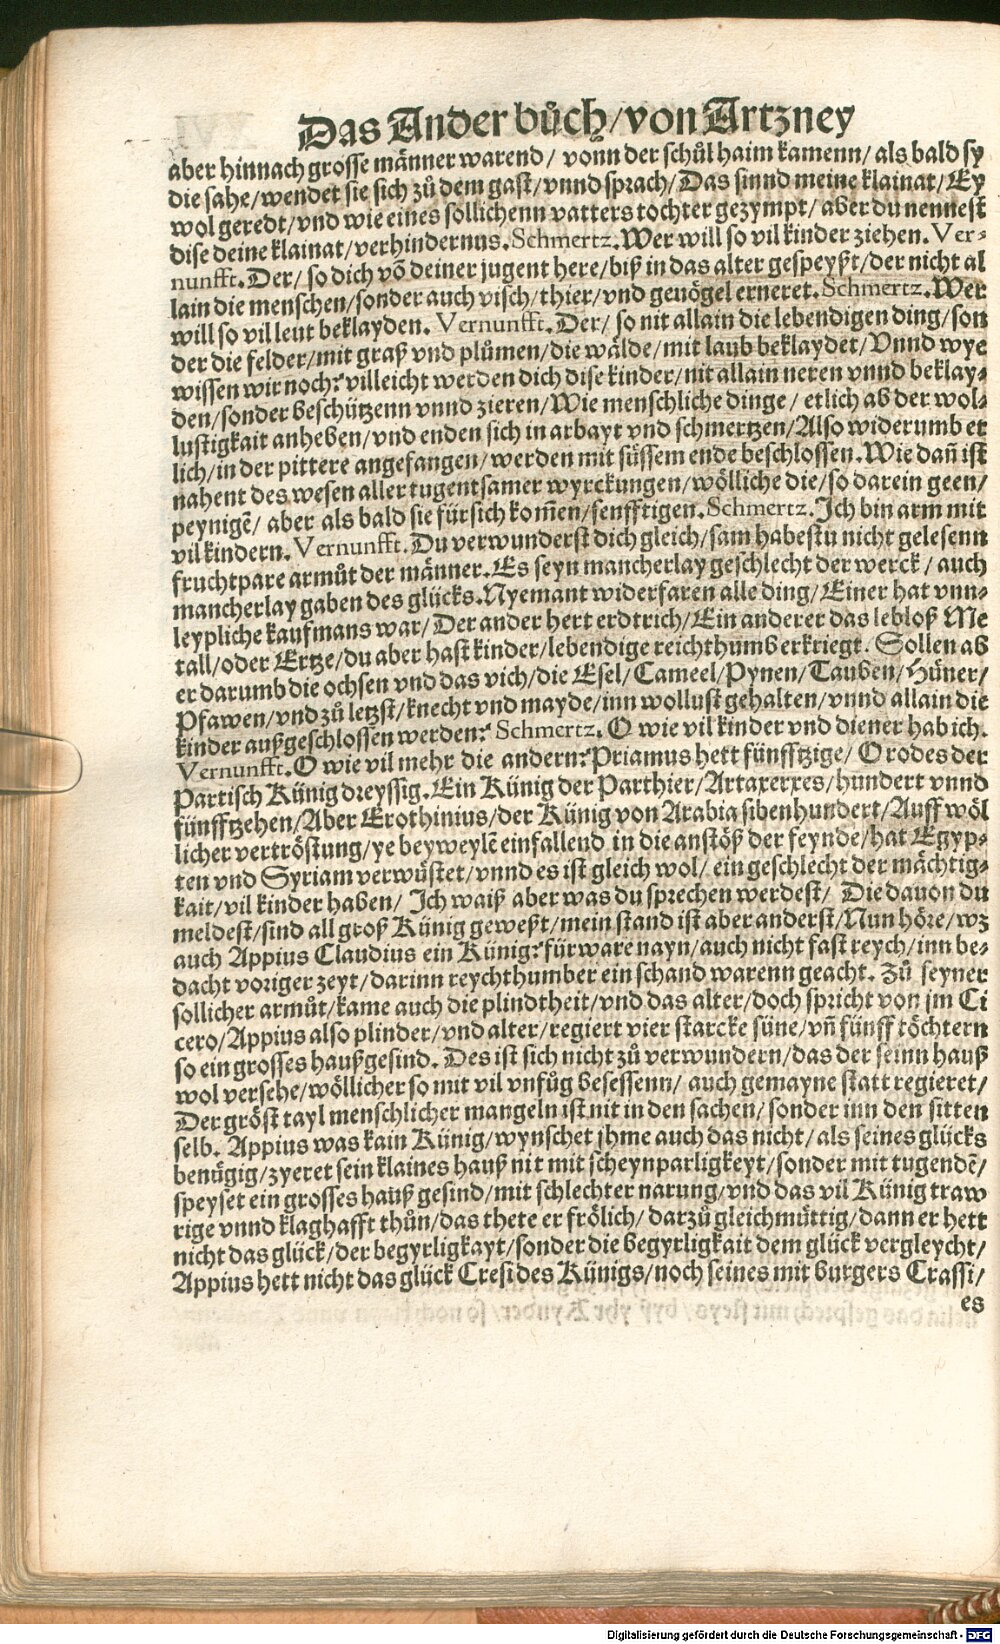 Das Ander bůch/von Artzney
aber hinnach grosse männer warend/ vonn der schůl haim kamenn/ als bald sy
die sahe/wendet sie sich zů dem gast/vnnd sprach/Das sinnd meine klainat/Ey
wol geredt/vnd wie eines sollichenn vatters tochter gezympt/ aber du nennest
dise deine klainat/verhindernus. Schmertz. Wer will so vil kinder ziehen. Ver-
nunfft. Der/ so dich võ deiner jugent here/biß in das alter gespeyßt/der nicht al
lain die menschen/sonder auch visch/thier/vnd geuögel erneret. Schmertz. Wer
will so vil leut beklayden. Vernunfft. Der/ so nit allain die lebendigen ding/son
der die felder/mit graß vnd plůmen/die wälde/mit laub beklaydet/Vnnd wye
wissen wir noch? villeicht werden dich dise kinder/nit allain neren vnnd beklay-
den/sonder beschützenn vnnd zieren/Wie menschliche dinge/ etlich ab der wol-
lustigkait anheben/vnd enden sich in arbayt vnd schmertzen/Also widerumb et
lich/in der pittere angefangen/werden mit süssem ende beschlossen. Wie dañ ist
nahent des wesen aller tugentsamer wyrckungen/wölliche die/so darein geen/
peynigẽ/ aber als bald sie fürsich kom̃en/senfftigen. Schmertz. Ich bin arm mit
vil kindern. Vernunfft. Du verwunderst dich gleich/sam habestu nicht gelesenn
fruchtpare armůt der männer. Es seyn mancherlay geschlecht der werck/ auch
mancherlay gaben des glücks. Nyemant widerfaren alle ding/Einer hat vnn-
leypliche kaufmans war/Der ander hert erdtrich/Ein anderer das lebloß Me
tall/oder Ertze/du aber hast kinder/lebendige reichthumb erkriegt. Sollen ab
er darumb die ochsen vnd das vich/die Esel/Cameel/Pynen/Tauben/Hüner/
Pfawen/vnd zů letzst/knecht vnd mayde/inn wollust gehalten/vnnd allain die
kinder außgeschlossen werden? Schmertz. O wie vil kinder vnd diener hab ich.
Vernunfft. O wie vil mehr die andern? Priamus hett fünfftzige/ Orodes der
Partisch Künig dreyssig. Ein Künig der Parthier/Artaxerxes/hundert vnnd
fünfftzehen/Aber Erothinius/der Künig von Arabia sibenhundert/Auff wöl
licher vertröstung/ye beyweylẽ einfallend in die anstöß der feynde/hat Egyp-
ten vnd Syriam verwüstet/vnnd es ist gleich wol/ ein geschlecht der mächtig-
kait/vil kinder haben/ Ich waiß aber was du sprechen werdest/ Die dauon du
meldest/sind all groß Künig geweßt/mein stand ist aber anderst/Nun höre/wz
auch Appius Claudius ein Künig? fürware nayn/auch nicht fast reych/inn be-
dacht voriger zeyt/darinn reychthumber ein schand warenn geacht. Zů seyner
sollicher armůt/kame auch die plindtheit/vnd das alter/doch spricht von jm Ci
cero/Appius also plinder/vnd alter/regiert vier starcke süne/vñ fünff töchtern
so ein grosses haußgesind. Des ist sich nicht zů verwundern/das der seinn hauß
wol versehe/wöllicher so mit vil vnfůg besessenn/ auch gemayne statt regieret/
Der gröst tayl menschlicher mangeln ist nit in den sachen/sonder inn den sitten
selb. Appius was kain Künig/wynschet jhme auch das nicht/als seines glücks
benügig/zyeret sein klaines hauß nit mit scheynparligkeyt/sonder mit tugendẽ/
speyset ein grosses hauß gesind/mit schlechter narung/vnd das vil Künig traw
rige vnnd klaghafft thůn/das thete er frölich/darzů gleichmüttig/dann er hett
nicht das glück/der begyrligkayt/sonder die begyrligkait dem glück vergleycht/
Appius hett nicht das glück Cresi des Künigs/noch seines mit burgers Crassi/
es
Digitalisierung gefördert durch die Deutsche Forschungsgemeinschaft - DFG